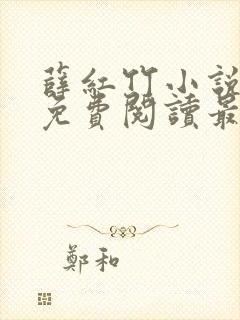 薛紅竹小說
免費閱讀最
鄭和